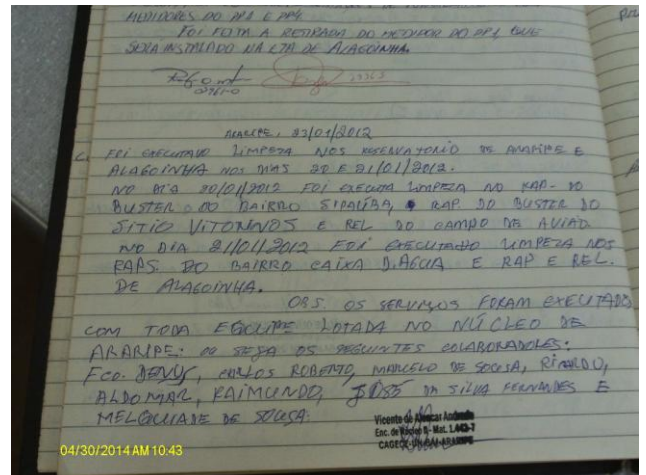 MEDIDORES DO PP1 E PP4.
FOI FEITA A RETIRADA DO MEDIDOR DO PP4, QUE
SERA INSTALADO NA ETA DE ALAGOINHA.
ARARIPE, 23/01/2012
FOI EXECUTADO LIMPEZA NOS RESERVATORIO DE ARARIPE E
ALAGOINHA NOS DIAS 20 E 21/01/2012.
NO DIA 20/01/2012 FOI EXECUTA LIMPEZA NO RAP. DO
BUSTER DO BAIRRO SIPAÚBA, RAP DO BUSTER DO
SITIO VITORINOS E REL DO CAMPO DE AVIAO
NO DIA 21/01/2012 FOI EXECUTADO LIMPEZA NOS
RAPS. DO BAIRRO CAIXA D'AGUA E RAP E REL.
DE ALAGOINHA.
OBS. OS SERVIÇOS FORAM EXECUTADOS
COM TODA EQUIPE LOTADA NO NÚCLEO DE
ARARIPE: OU SEJA OS SEGUINTES COLABORADORES:
FCO. CARLOS ROBERTO, MARCELO DE SOUSA, RICARDO,
ALDOMAR, RAIMUNDO, JOSÉ DA SILVA FERNANDES E
MELQUIADE DE SOUSA.
Vicente de Alencar Andrade
Enc. de Núcleo II - Mat. 1.443-7
04/30/2014 AM 10:43